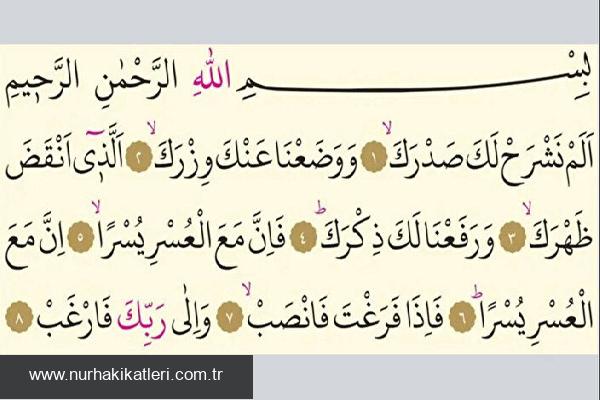 بِسْمِ اللّٰهِ الرَّحْمٰنِ الرَّحٖيمِ
اَلَمْ نَشْرَحْ لَكَ صَدْرَكَۙ ﴿١﴾ وَوَضَعْنَا عَنْكَ وِزْرَكَۙ ﴿٢﴾ اَلَّذٖٓى اَنْقَضَ
ظَهْرَكَۙ ﴿٣﴾ وَرَفَعْنَا لَكَ ذِكْرَكَؕ ﴿٤﴾ فَاِنَّ مَعَ الْعُسْرِ يُسْرًاۙ ﴿٥﴾ اِنَّ مَعَ
الْعُسْرِ يُسْرًاؕ ﴿٦﴾ فَاِذَا فَرَغْتَ فَانْصَبْۙ ﴿٧﴾ وَاِلٰى رَبِّكَ فَارْغَبْ ﴿٨﴾
www.nurhakikatleri.com.tr